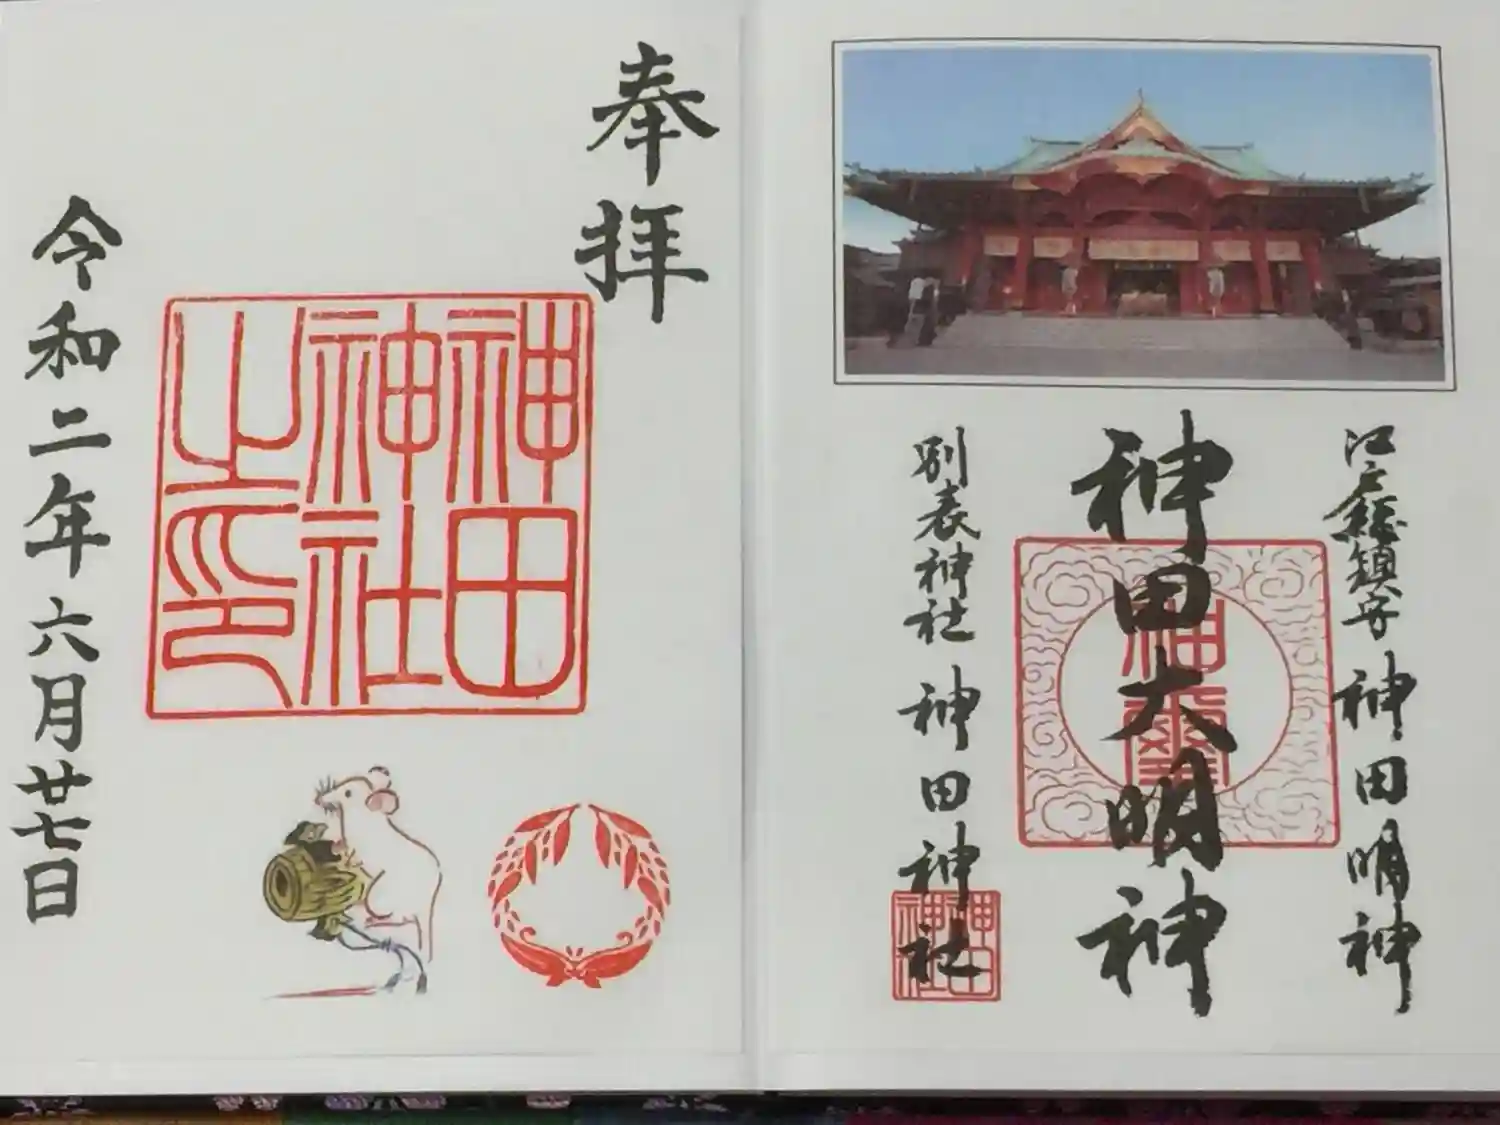 江戸総鎮守 神田明神
神田大明神
神霊
別表神社 神田神社
神田神社
奉拝
神田神社之印
令和二年六月廿七日